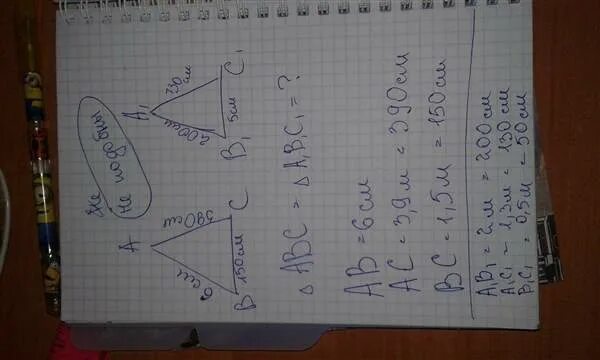 не
не подобны
A
A₁
6см
390см
200см
130
см
B
150см
C
B₁
5см
C₁
Δ ABC = Δ A₁B₁C₁ = ?
AB = 6см
AC = 3,9м = 390см
BC = 1,5м = 150см
A₁B₁ = 2м = 200см
A₁C₁ = 1,3м = 130см
B₁C₁ = 0,5м = 50см